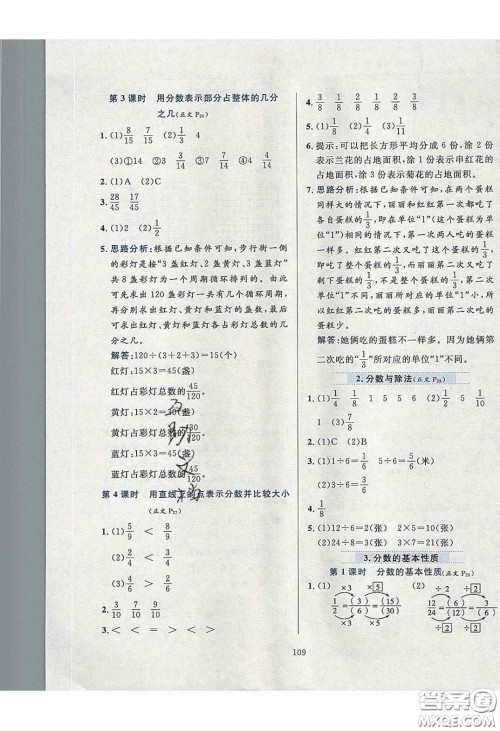 第3课时 用分数表示部分占整体的几分
之几(正文P25)
1. (1) 8/15 7/15 (2) 1/3 4
(3) ① 7/14 ② 9/14 ③ 6/14 ④ 7/14
2. (1) A (2) C
3. 28/45 17/45
4. (1) 2 (2) 1/2
5. 思路分析:根据已知条件可知,步行街一侧
的彩灯是按“3盏红灯、2盏黄灯、3盏蓝灯”
共8盏灯为一个周期循环排列的。因此可
以先求出120盏彩灯一共有几个循环周期,
再利用每个周期里各色彩灯的数量,最后
可求出红灯、黄灯和蓝灯各占彩灯总数的几
分之几。
解答:120÷(3+2+3)=15(个)
红灯:15×3=45(盏)
红灯占彩灯总数的45/120。
黄灯:15×2=30(盏)
黄灯占彩灯总数的30/120。
蓝灯:15×3=45(盏)
蓝灯占彩灯总数的45/120。
第4课时 用直线上的点表示分数并比较大小
(正文P27)
1. (1) 5/9 < 8/9
(2) 4/7 > 2/7
(3) 4/6 > 2/6
2. 3/10 7/10 9/10
3. < < > < > <
4. 3/8 1/8 4/8 1/8
5. (1) 1/15 (2) 8/15 (3) 6/15
6. 提示:可以把长方形平均分成6份,涂2份
表示兰花的占地面积,涂1份表示串红花的
占地面积,涂3份表示菊花的占地面积。
7. 思路分析:根据已知条件可知,在两个蛋糕
同样大的情况下,丽丽和红红第一次都吃了
各自蛋糕的1/3,即在单位“1”(两个蛋糕分
别为单位“1”)相同的情况下,第一次两人吃
的蛋糕一样多。红红第二次又吃了整个
蛋糕的1/3,而丽丽第二次又吃了剩下蛋糕的
1/3,红红、丽丽所对应的单位“1”不同,所以
她俩吃的蛋糕不一样多。
解答:她俩吃的蛋糕不一样多。因为她俩第
二次吃的“1/3”所对应的单位“1”不同。
2.分数与除法(正文P28)
1 7/8 (3) 8/15
2. (1) C (2) B
3. (1) 1÷6=1/6 (2) 5÷6=5/6(米)
4. 1/8
5. (1) 12÷6=2(张) 2×5=10(张)
(2) 24÷8=3(张) 3×2=6(张)
3.分数的基本性质
第1课时 分数的基本性质(正文P29)
×3 ×5 ÷2 ÷2
1. (1) 1/2=(3)/(6)=(15)/(30) (2) 12/24=(6)/(12)=(3)/(6)
×3 ×5 ÷2 ÷2
109
答案圈
MXQE.COM